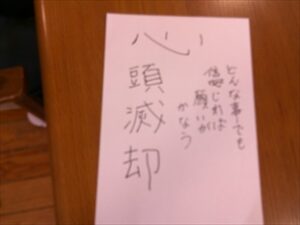 心頭滅却
どんな事でも
信じれば
願いが
かなう